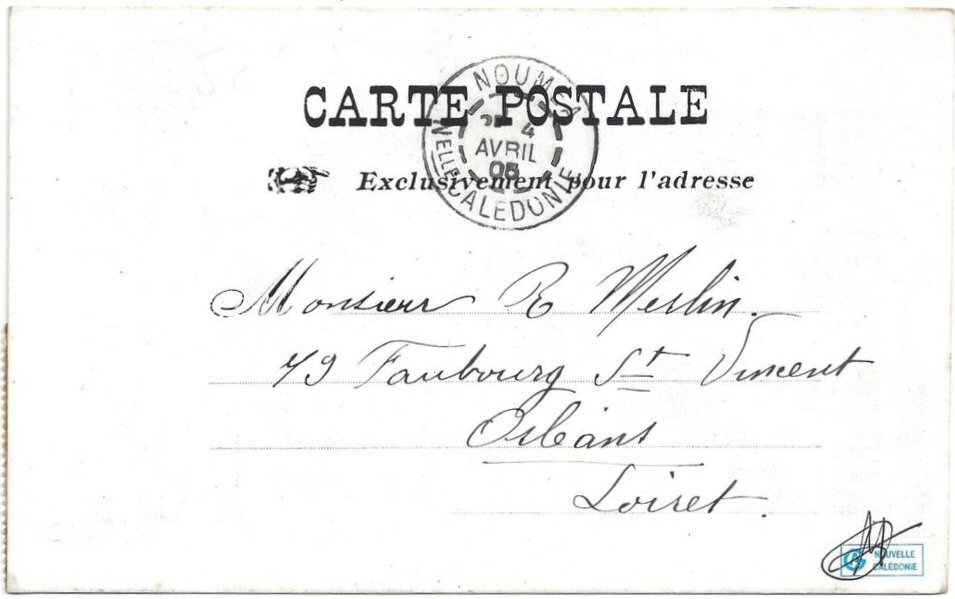 CARTE POSTALE
NOUMEA
4
AVRIL
05
Nelle CALEDONIE
Exclusivement pour l'adresse
Monsieur R Merlin.
79 Faubourg St Vincent
Orléans
Loiret.
NOUVELLE
CALÉDONIE